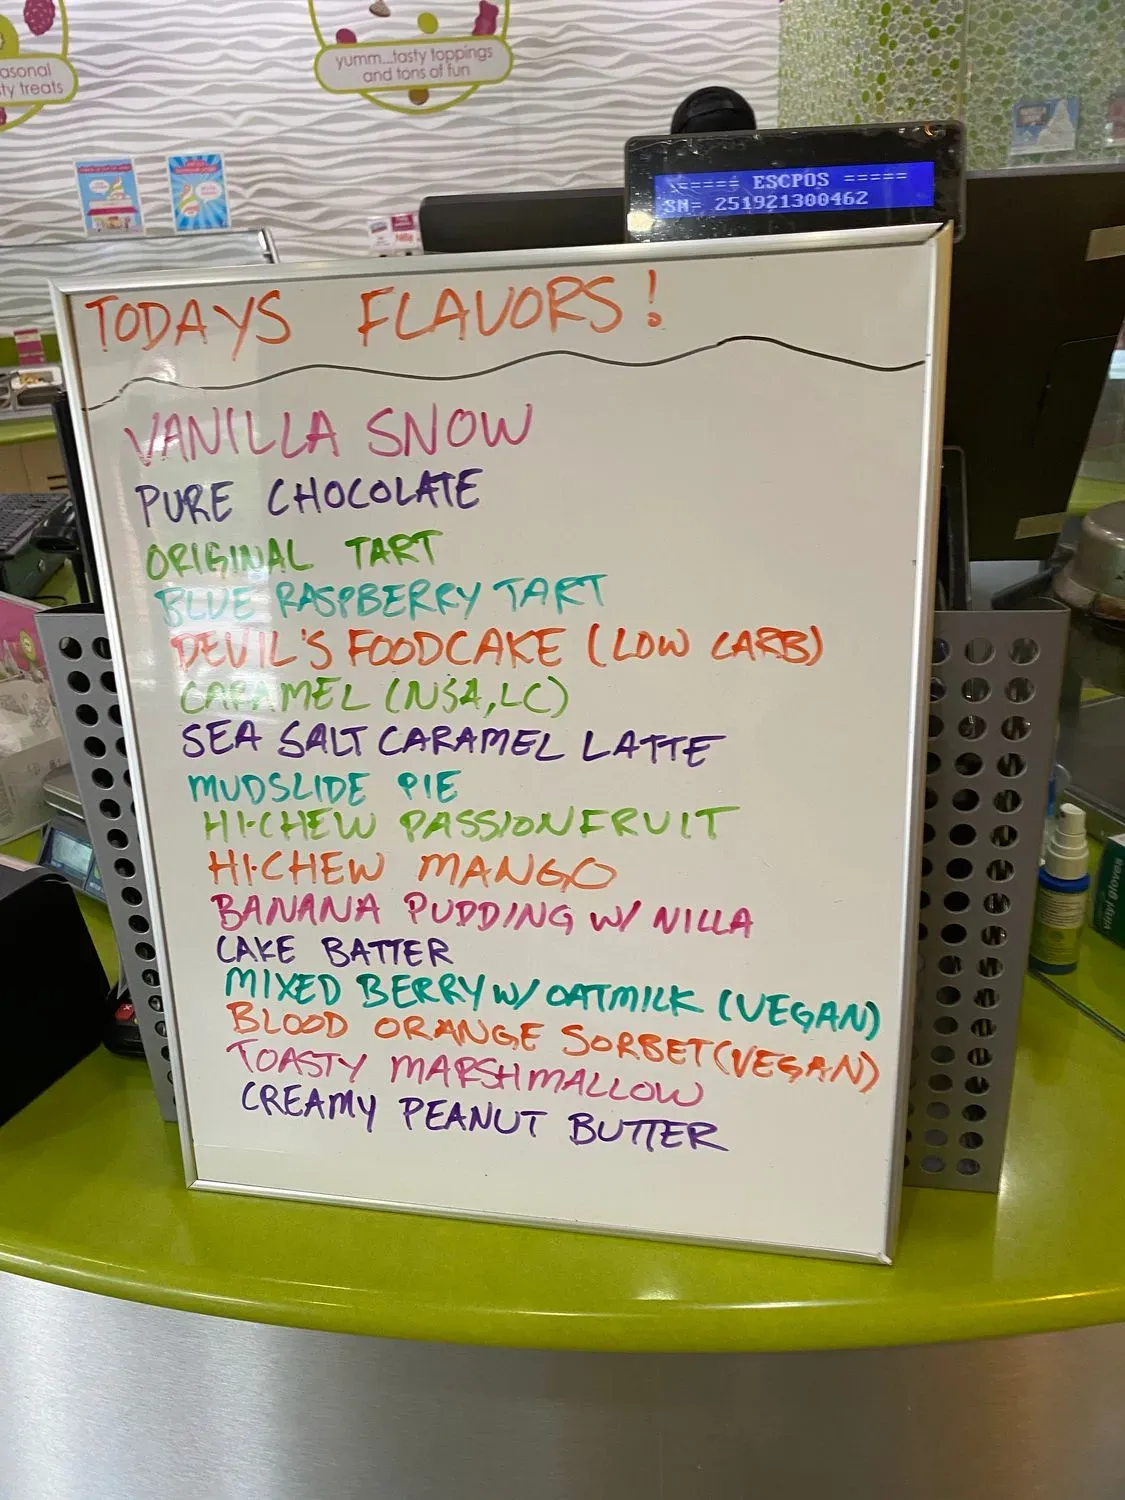 asonal
ty treats
yumm...tasty toppings
and tons of fun
===== ESCPOS =====
SN= 251921300462
TODAYS FLAVORS!
VANILLA SNOW
PURE CHOCOLATE
ORIGINAL TART
BLUE RASPBERRY TART
DEVIL'S FOODCAKE (LOW CARB)
CARAMEL (NSA, LC)
SEA SALT CARAMEL LATTE
MUDSLIDE PIE
HI-CHEW PASSIONFRUIT
HI-CHEW MANGO
BANANA PUDDING W/ NILLA
CAKE BATTER
MIXED BERRY W/ OATMILK (VEGAN)
BLOOD ORANGE SORBET (VEGAN)
TOASTY MARSHMALLOW
CREAMY PEANUT BUTTER
vinyl gloves